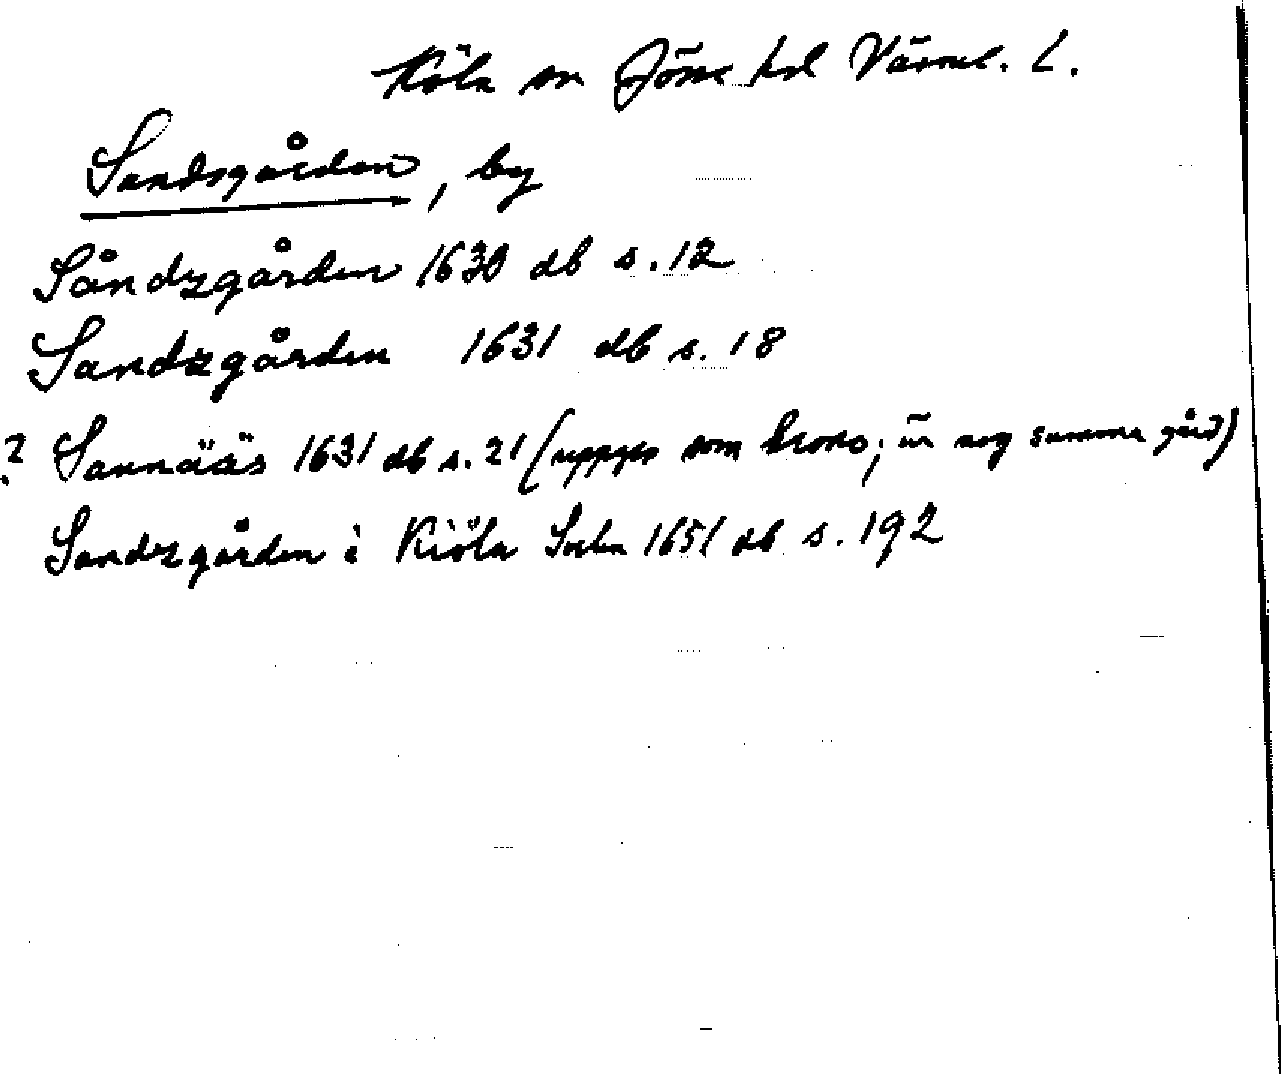 Köla sn Jösse hd Värml. L.
Sandsgården, by
Såndzgården 1630 db s. 12
Sandzgården 1631 db s. 18
? Sannääs 1631 db s. 21 (uppges som krono; är nog samma gård)
Sandzgården i Kiöla Sochn 1651 db s. 192